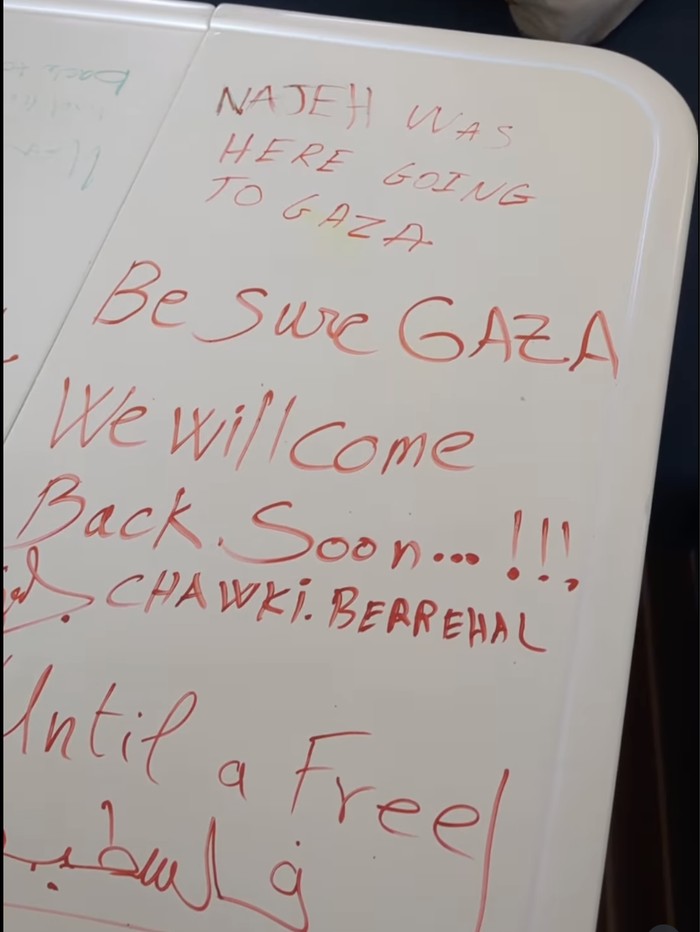 NAJEH WAS
HERE GOING
TO GAZA
Be Sure GAZA
We will come
Back. Soon...!!!
CHAWKi. BERREHAL
Until a Free